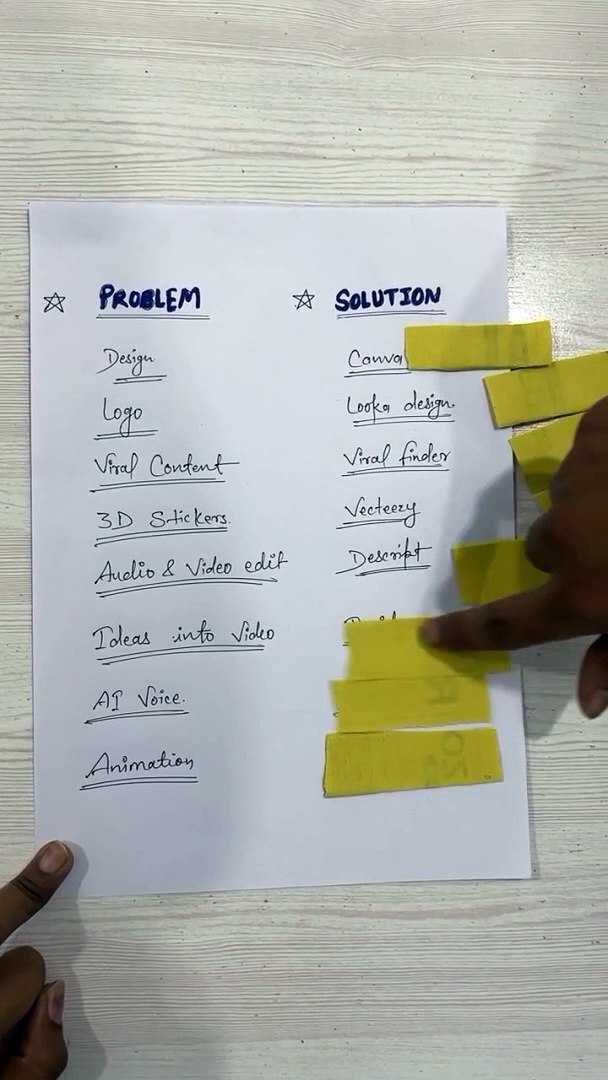 ☆ PROBLEM ☆ SOLUTION
Design Canva
Logo Looka design.
Viral Content Viral finder
3D Stickers. Vecteezy
Audio & Video edit Descript
Ideas into Video
AI Voice.
Animation